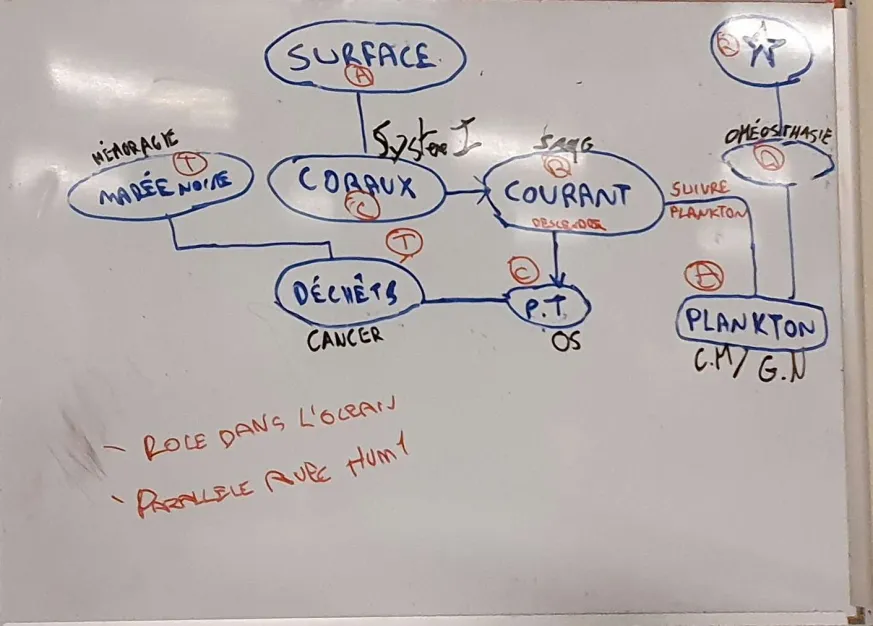 SURFACE
A
R
HÉMORAGIE
T
MARÉE NOIRE
Système I
CORAUX
C
SANG
R
COURANT
DESCENDRE
SUIVRE
PLANKTON
OMÉOSTHASIE
T
DÉCHÊTS
CANCER
C
P.T
OS
A
PLANKTON
C.M/ G.N
- ROLE DANS L'OCEAN
- PARALLELE AVEC HUM1